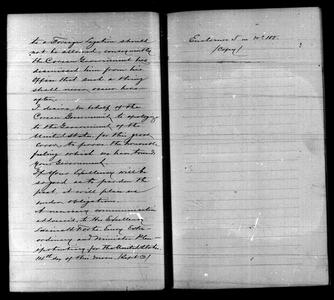 to a Foreign Legation should
not be allowed, consequently
the Corean Government has
dismissed him from his
office that such a thing
shall never occur here-
after.
I desire, on behalf of the
Corean Government to apologize
to the Government of the
United States for this great
error, to prove the
feeling which we have toward
your Government.
If your Excellency will be
so good as to pardon the
past, it will place me
under obligations.
A necessary communication
addressed to His Excellency
Lucius H. Foote Envoy Extra-
ordinary and Minister Plen-
ipotentiary for the United States
14th day of the moon (Sept 3)
Enclosure 5 in No. 105.
(Copy)